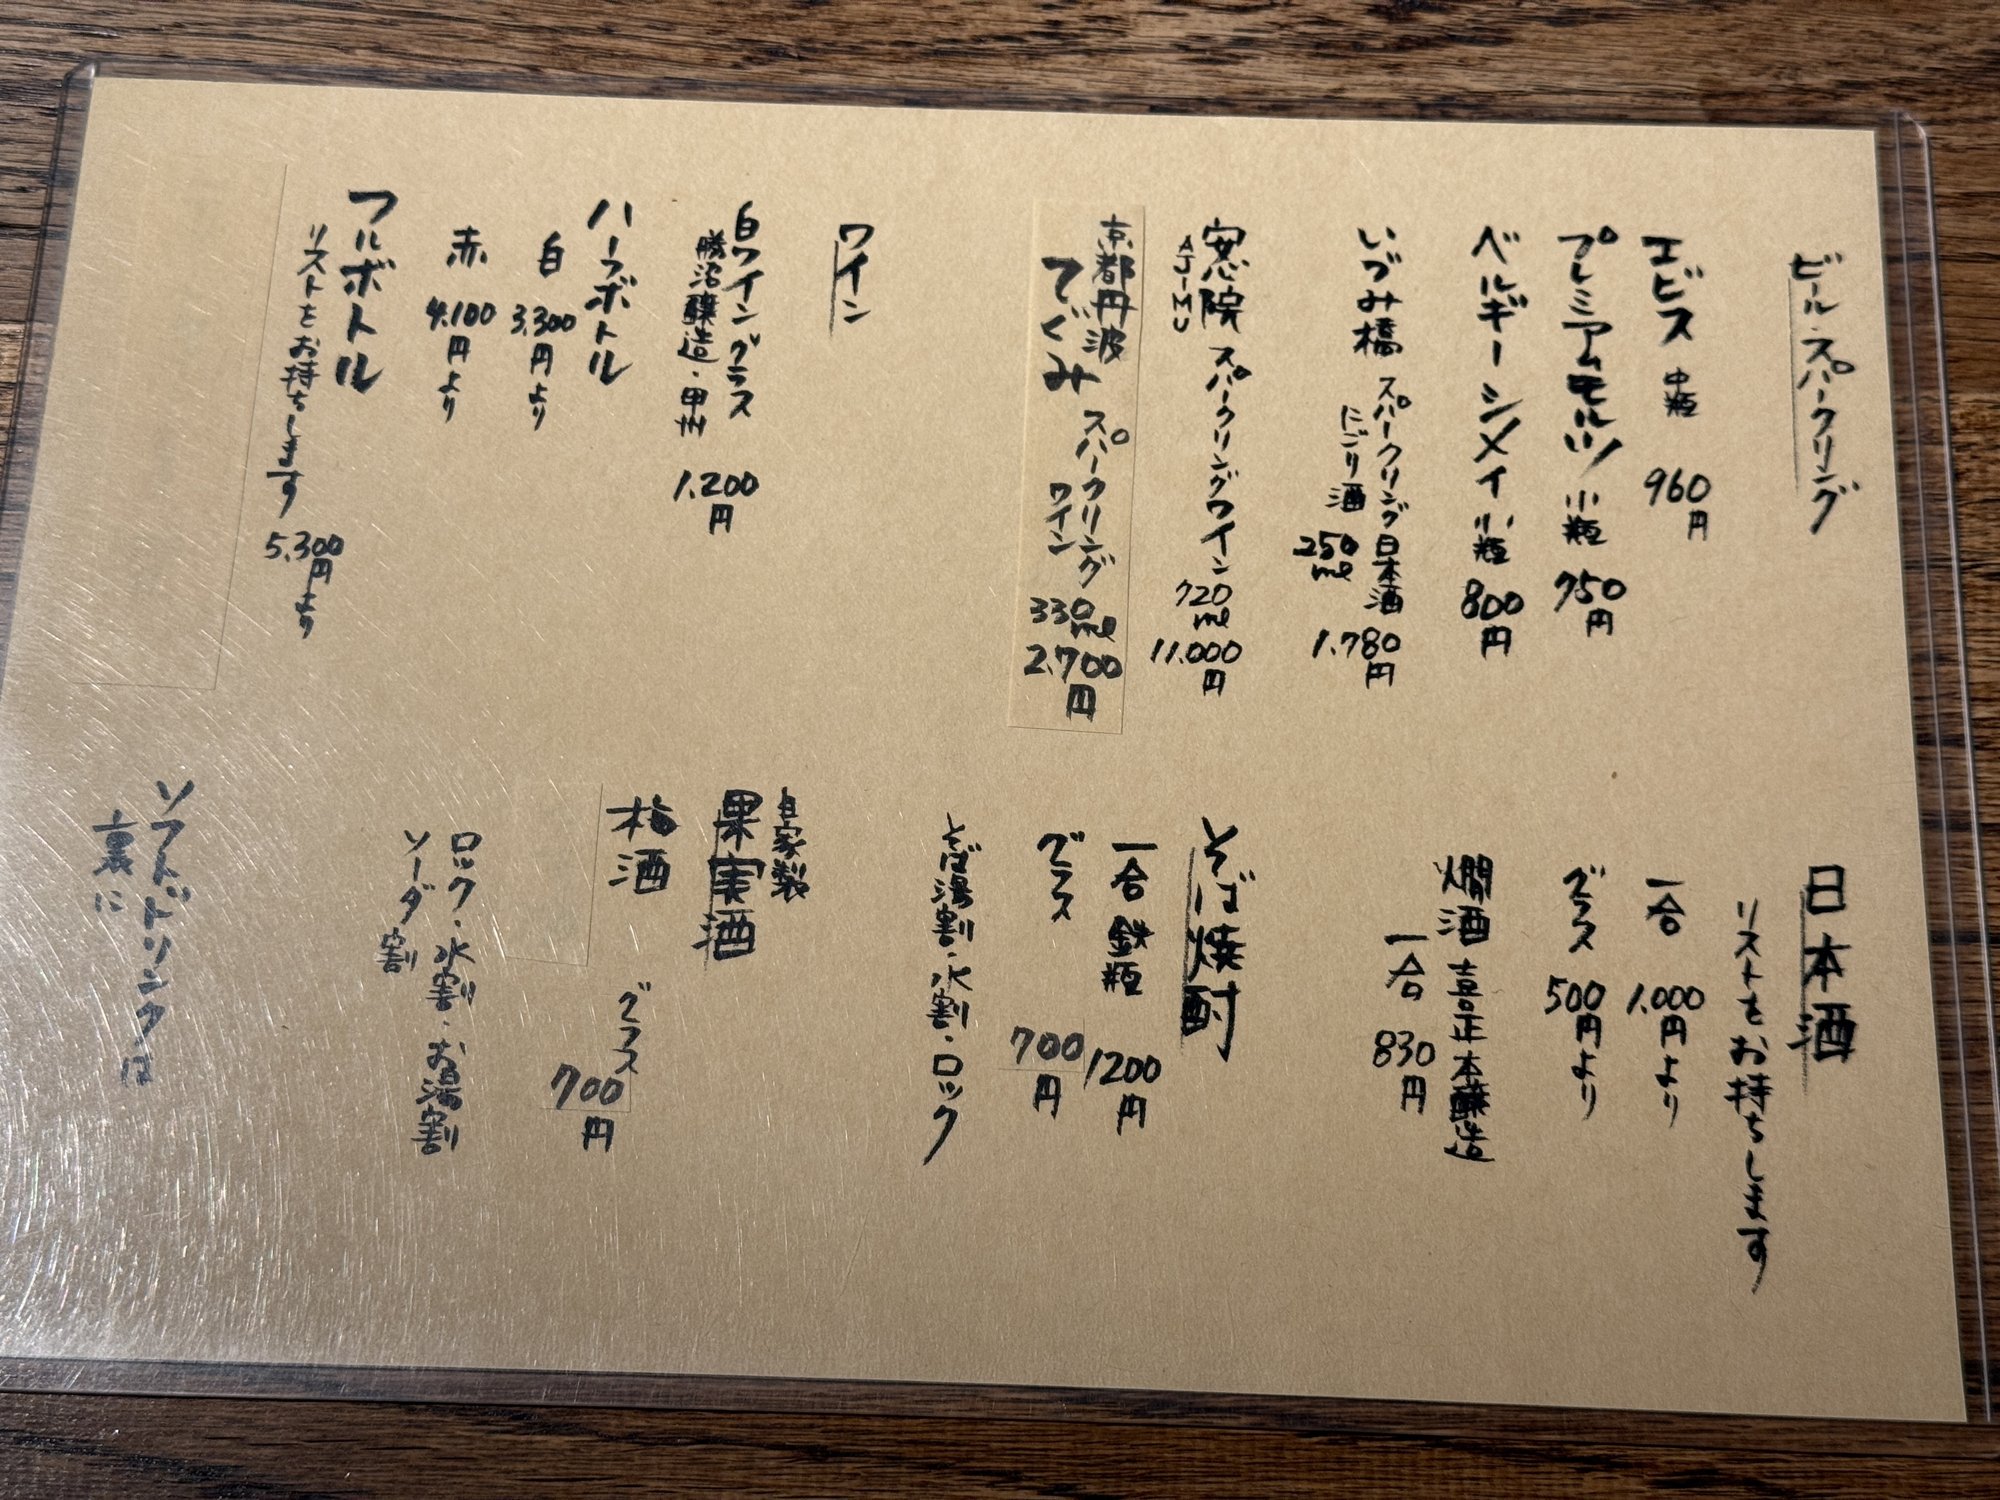 ビール・スパークリング
エビス 中瓶 960円
プレミアムモルツ 小瓶 750円
ベルギーシメイ 小瓶 800円
いづみ橋 スパークリング日本酒 1.780円
にごり酒 250ml
安心院 スパークリングワイン 720ml 11.000円
AJIMU
京都丹波
てぐみ スパークリングワイン 330ml 2.700円
ワイン
白ワイングラス
勝沼醸造・甲州 1.200円
ハーフボトル
白 3.300円より
赤 4.100円より
フルボトル
リストをお持ちします 5.300円より
日本酒
リストをお持ちします
一合 1.000円より
グラス 500円より
燗酒 喜正本醸造
一合 830円
そば焼酎
一合 鉄瓶 1200円
グラス 700円
そば湯割・水割・ロック
自家製
果実酒
梅酒 グラス 700円
ロック・水割・お湯割
ソーダ割
ソフトドリンクは
裏に